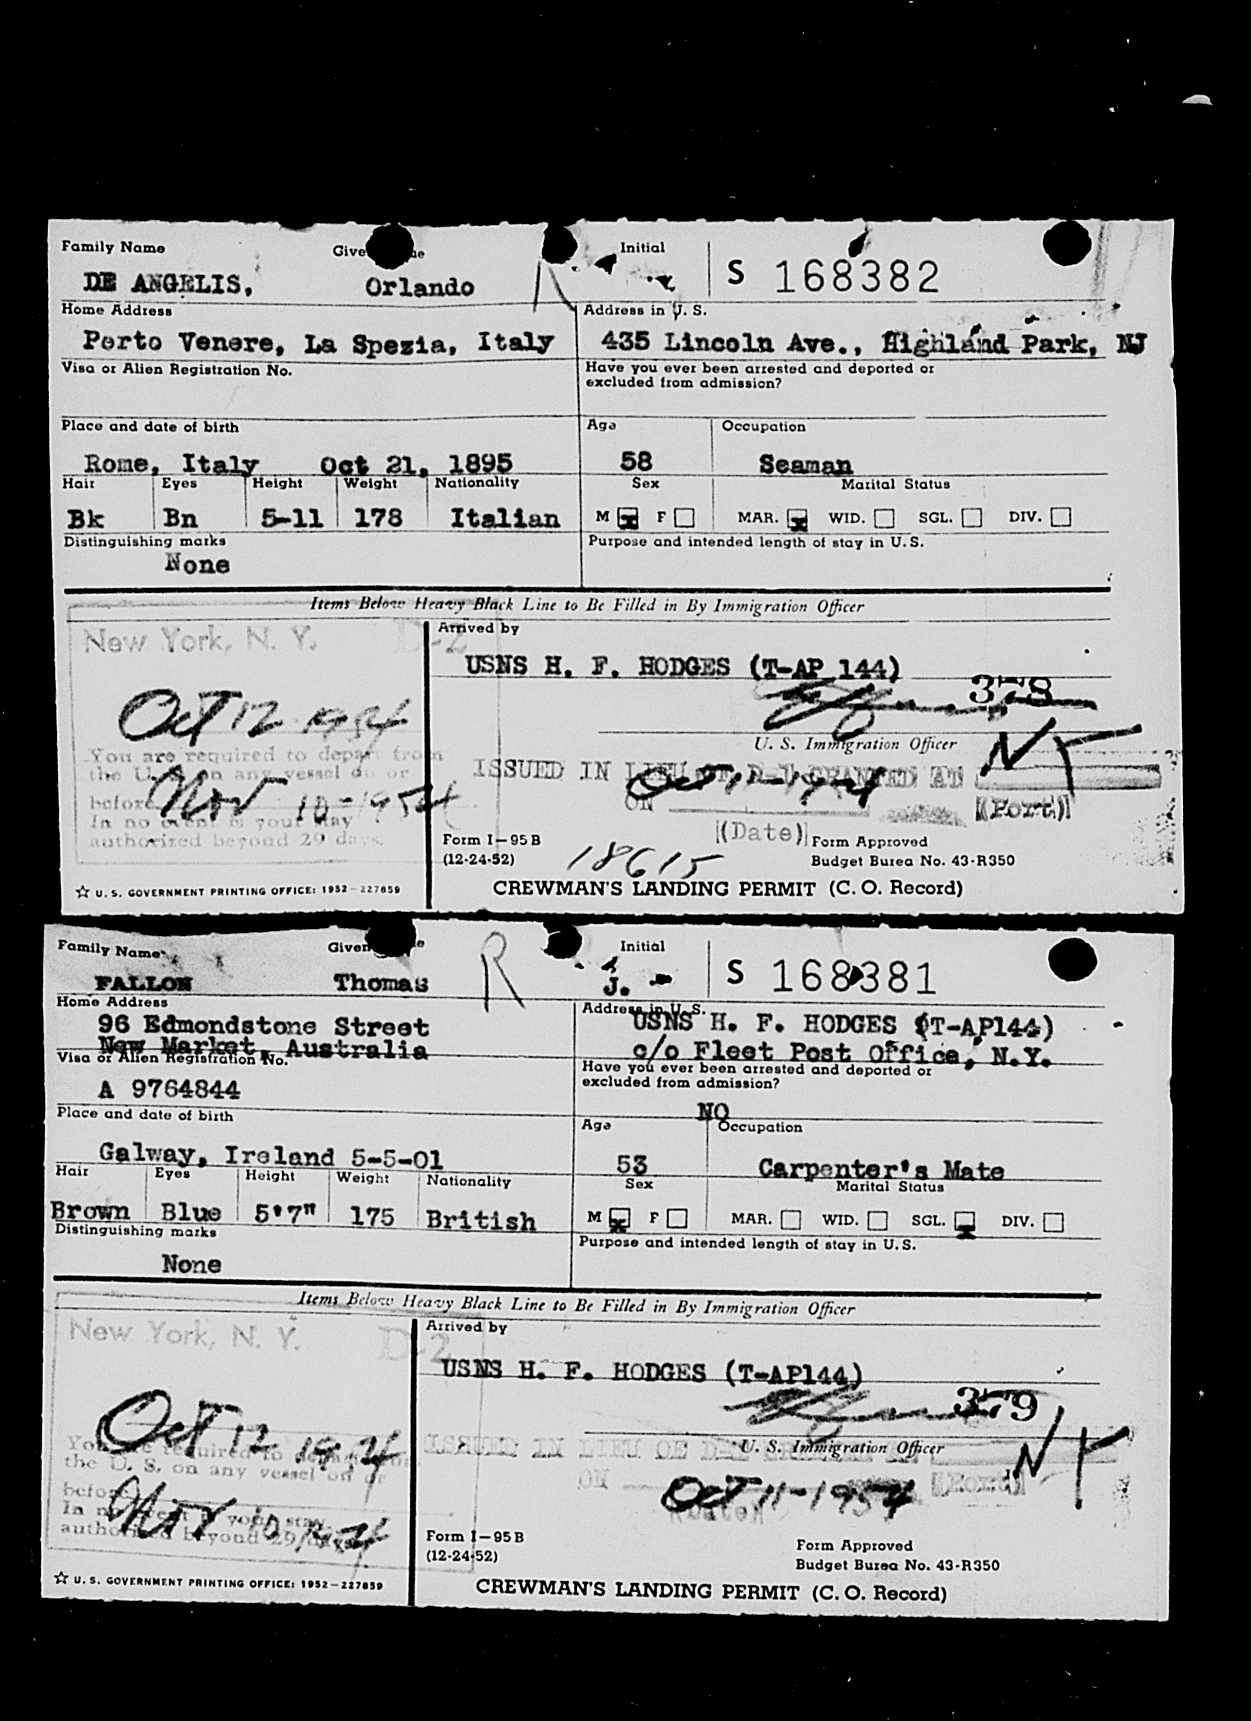 Family Name Give me Initial
S 168382
DE ANGELIS, Orlando
Home Address Address in U. S.
Porto Venere, La Spezia, Italy 435 Lincoln Ave., Highland Park, NJ
Visa or Alien Registration No. Have you ever been arrested and deported or
excluded from admission?
Place and date of birth Age Occupation
Rome, Italy Oct 21, 1895 58 Seaman
Hair Eyes Height Weight Nationality Sex Marital Status
Bk Bn 5-11 178 Italian M x F MAR. x WID. SGL. DIV.
Distinguishing marks Purpose and intended length of stay in U.S.
None
Items Below Heavy Black Line to Be Filled in By Immigration Officer
New York, N. Y. D-2 Arrived by
USNS H. F. HODGES (T-AP 144)
378
Oct 12 1954
U. S. Immigration Officer NY
You are required to depart from
the U.S. on any vessel on or
ISSUED IN LIEU OF D-1 GRANTED AT
Oct 11-1954
before Nov 10-1954
ON (Port)
In no event is your stay
authorized beyond 29 days.
(Date)
Form I-95B Form Approved
(12-24-52) 18615 Budget Burea No. 43-R350
☆ U. S. GOVERNMENT PRINTING OFFICE: 1952-227859 CREWMAN'S LANDING PERMIT (C. O. Record)
Family Name Given e Initial
R S 168381
FALLON Thomas J.
Home Address Address in U. S.
96 Edmondstone Street USNS H. F. HODGES (T-AP144)
New Market, Australia c/o Fleet Post Office, N.Y.
Visa or Alien Registration No. Have you ever been arrested and deported or
excluded from admission?
A 9764844
NO
Place and date of birth Age Occupation
Galway, Ireland 5-5-01 53 Carpenter's Mate
Hair Eyes Height Weight Nationality Sex Marital Status
Brown Blue 5'7" 175 British M x F MAR. WID. SGL. x DIV.
Distinguishing marks Purpose and intended length of stay in U.S.
None
Items Below Heavy Black Line to Be Filled in By Immigration Officer
New York, N. Y. D-2 Arrived by
USNS H. F. HODGES (T-AP144)
379
Oct 12 1954
U. S. Immigration Officer NY
You are required to depart from
the U. S. on any vessel on or
ISSUED IN LIEU OF
ON (Port)
before Nov 10 1954
Oct 11-1954
(Date)
In no event is your stay
authorized beyond 29 days
Form I-95B Form Approved
(12-24-52) Budget Burea No. 43-R350
☆ U. S. GOVERNMENT PRINTING OFFICE: 1952-227859 CREWMAN'S LANDING PERMIT (C. O. Record)